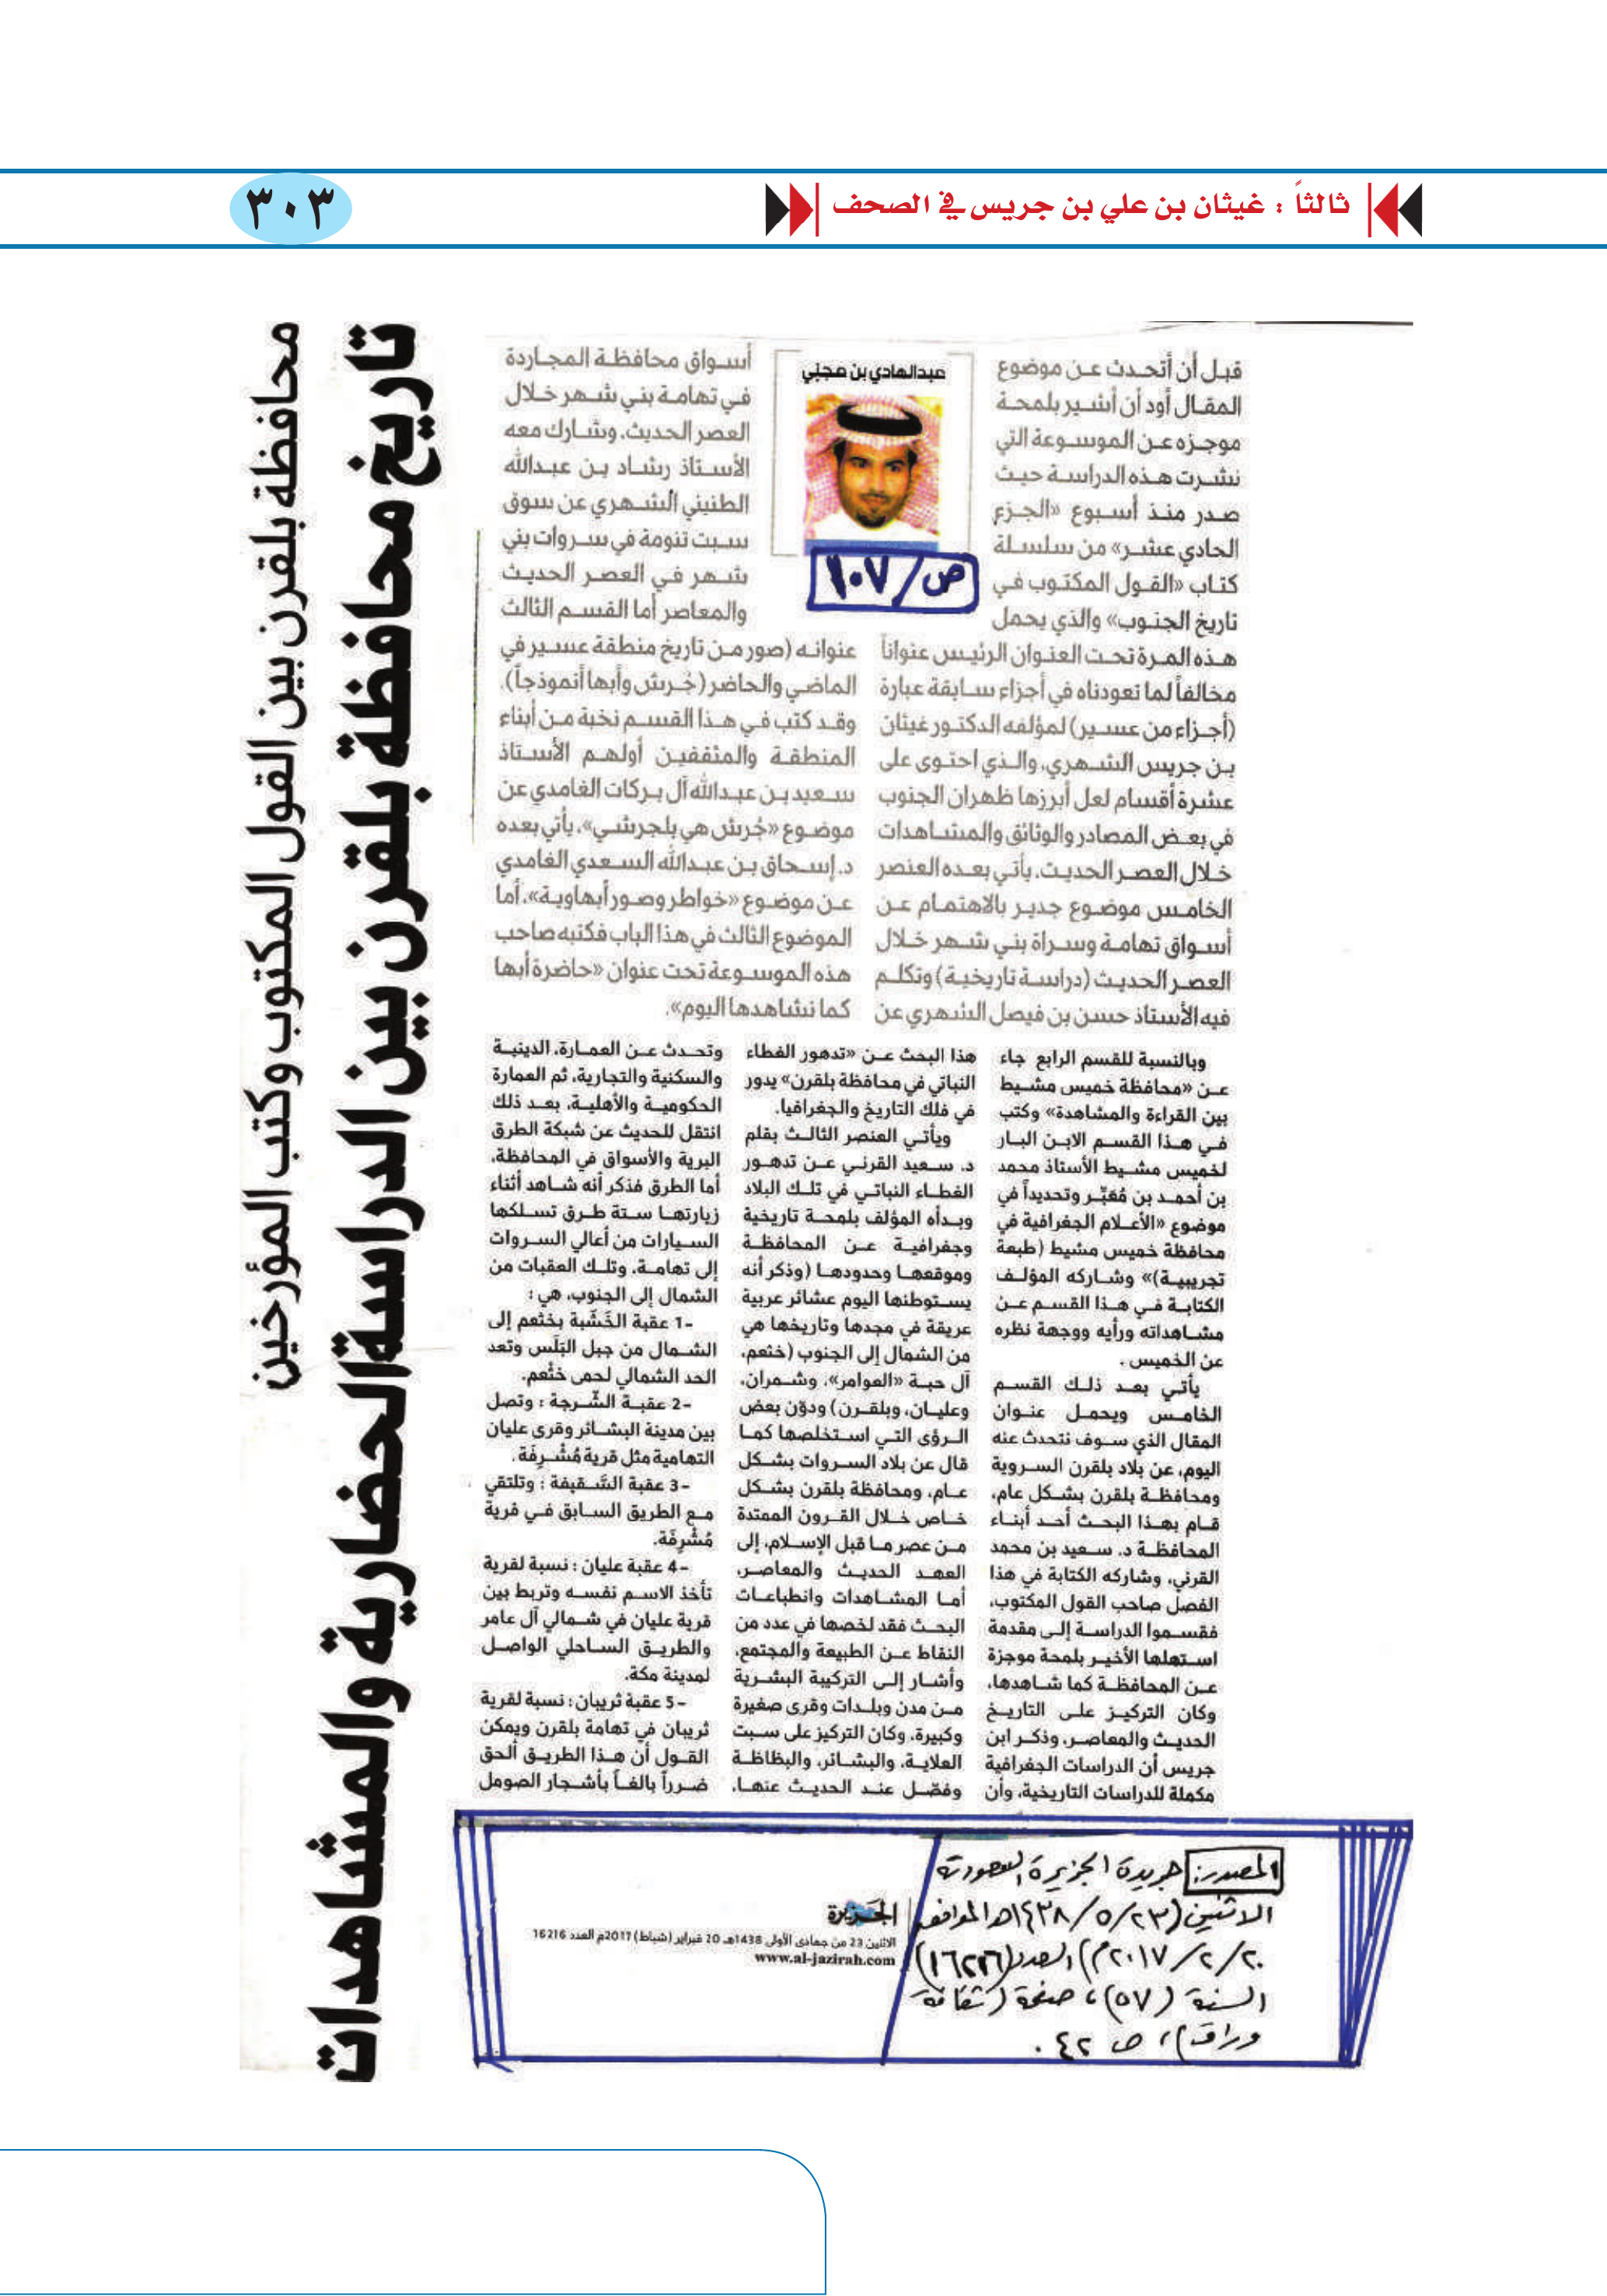 ثالثاً : غيثان بن علي بن جريس في الصحف
٣٠٣
محافظة بلقرن بين القول المكتوب وكتب المؤرخين
تاريخ محافظة بلقرن بين الدراسة الحضارية والمشاهدات
عبدالهادي بن مجنّي
ص/١٠٧
قبل أن أتحدث عن موضوع
المقال أود أن أشير بلمحة
موجزه عن الموسوعة التي
نشرت هذه الدراسة حيث
صدر منذ أسبوع «الجزء
الحادي عشر» من سلسلة
كتاب «القول المكتوب في
تاريخ الجنوب» والذي يحمل
هذه المرة تحت العنوان الرئيس عنواناً
مخالفاً لما تعودناه في أجزاء سابقة عبارة
(أجزاء من عسير) لمؤلفه الدكتور غيثان
بن جريس الشهري، والذي احتوى على
عشرة أقسام لعل أبرزها ظهران الجنوب
في بعض المصادر والوثائق والمشاهدات
خلال العصر الحديث، يأتي بعده العنصر
الخامس موضوع جدير بالاهتمام عن
أسواق تهامة وسراة بني شهر خلال
العصر الحديث (دراسة تاريخية) وتكلم
فيه الأستاذ حسن بن فيصل الشهري عن
أسواق محافظة المجاردة
في تهامة بني شهر خلال
العصر الحديث، وشارك معه
الأستاذ رشاد بن عبدالله
الطنيني الشهري عن سوق
سبت تنومة في سروات بني
شهر في العصر الحديث
والمعاصر أما القسم الثالث
عنوانه (صور من تاريخ منطقة عسير في
الماضي والحاضر (جُرش وأبها أنموذجاً)،
وقد كتب في هذا القسم نخبة من أبناء
المنطقة والمثقفين أولهم الأستاذ
سعيد بن عبدالله آل بركات الغامدي عن
موضوع «جُرش هي بلجرشي»، يأتي بعده
د. إسحاق بن عبدالله السعدي الغامدي
عن موضوع «خواطر وصور أبهاوية»، أما
الموضوع الثالث في هذا الباب فكتبه صاحب
هذه الموسوعة تحت عنوان «حاضرة أبها
كما نشاهدها اليوم».
وبالنسبة للقسم الرابع جاء
عن «محافظة خميس مشيط
بين القراءة والمشاهدة» وكتب
في هذا القسم الابن البار
لخميس مشيط الأستاذ محمد
بن أحمد بن مُعَبِّر وتحديداً في
موضوع «الأعلام الجغرافية في
محافظة خميس مشيط (طبعة
تجريبية)» وشاركه المؤلف
الكتابة في هذا القسم عن
مشاهداته ورأيه ووجهة نظره
عن الخميس .
يأتي بعد ذلك القسم
الخامس ويحمل عنوان
المقال الذي سوف نتحدث عنه
اليوم، عن بلاد بلقرن السروية
ومحافظة بلقرن بشكل عام،
قام بهذا البحث أحد أبناء
المحافظة د. سعيد بن محمد
القرني، وشاركه الكتابة في هذا
الفصل صاحب القول المكتوب،
فقسموا الدراسة إلى مقدمة
استهلها الأخير بلمحة موجزة
عن المحافظة كما شاهدها،
وكان التركيز على التاريخ
الحديث والمعاصر، وذكر ابن
جريس أن الدراسات الجغرافية
مكملة للدراسات التاريخية، وأن
هذا البحث عن «تدهور الغطاء
النباتي في محافظة بلقرن» يدور
في فلك التاريخ والجغرافيا.
ويأتي العنصر الثالث بقلم
د. سعيد القرني عن تدهور
الغطاء النباتي في تلك البلاد
وبدأه المؤلف بلمحة تاريخية
وجغرافية عن المحافظة
وموقعها وحدودها (وذكر أنه
يستوطنها اليوم عشائر عربية
عريقة في مجدها وتاريخها هي
من الشمال إلى الجنوب (خثعم،
آل حبة «العوامر»، وشمران،
وعليان، وبلقرن) ودوّن بعض
الرؤى التي استخلصها كما
قال عن بلاد السروات بشكل
عام، ومحافظة بلقرن بشكل
خاص خلال القرون الممتدة
من عصر ما قبل الإسلام، إلى
العهد الحديث والمعاصر،
أما المشاهدات وانطباعات
البحث فقد لخصها في عدد من
النقاط عن الطبيعة والمجتمع،
وأشار إلى التركيبة البشرية
من مدن وبلدات وقرى صغيرة
وكبيرة، وكان التركيز على سبت
العلاية، والبشائر، والبظاظة
وفصّل عند الحديث عنها،
وتحدث عن العمارة، الدينية
والسكنية والتجارية، ثم العمارة
الحكومية والأهلية، بعد ذلك
انتقل للحديث عن شبكة الطرق
البرية والأسواق في المحافظة،
أما الطرق فذكر أنه شاهد أثناء
زيارتها ستة طرق تسلكها
السيارات من أعالي السروات
إلى تهامة، وتلك العقبات من
الشمال إلى الجنوب، هي :
1- عقبة الخَشّبة بخثعم إلى
الشمال من جبل البَلَس وتعد
الحد الشمالي لحمى خثْعم.
2- عقبة الشّرجة : وتصل
بين مدينة البشائر وقرى عليان
التهامية مثل قرية مُشْرِفَة .
3- عقبة السَّقيفة : وتلتقي
مع الطريق السابق في قرية
مُشْرِفَة.
4- عقبة عليان : نسبة لقرية
تأخذ الاسم نفسه وتربط بين
قرية عليان في شمالي آل عامر
والطريق الساحلي الواصل
لمدينة مكة.
5- عقبة ثريبان : نسبة لقرية
ثريبان في تهامة بلقرن ويمكن
القول أن هذا الطريق ألحق
ضرراً بالغاً بأشجار الصومل
المصدر: جريدة الجزيرة السعودية
الاثنين (٢٣/ ٥/ ١٤٣٨هـ الموافق
٢٠/ ٢/ ٢٠١٧م) العدد (١٦٢١٦)
السنة (٥٧)، صفحة (ثقافة
وراق)، ص ٤٢ .
الجزيرة
الاثنين 23 من جمادى الأولى 1438هـ 20 فبراير (شباط) 2017م العدد 16216
www.al-jazirah.com